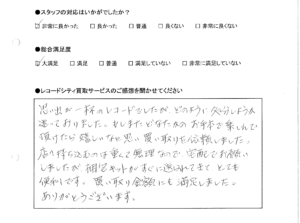 ●スタッフの対応はいかがでしたか?
☑非常に良かった □良かった □普通 □良くない □非常に良くない
●総合満足度
☑大満足 □満足 □普通 □満足していない □非常に満足していない
●レコードシティ買取サービスのご感想を聞かせてください
思い出が一杯のレコードでしたが どのように処分しようか
迷っておりました。もしまたどなたかのお手元で楽しんで
頂けたら嬉しいな思い買い取りを依頼しました。
店へ持ち込むのは重くて無理なので、宅配でお願い
しましたが、梱包キットがすぐに送られてきて、とても
便利です。買い取り金額にも満足しました。
ありがとうございます。